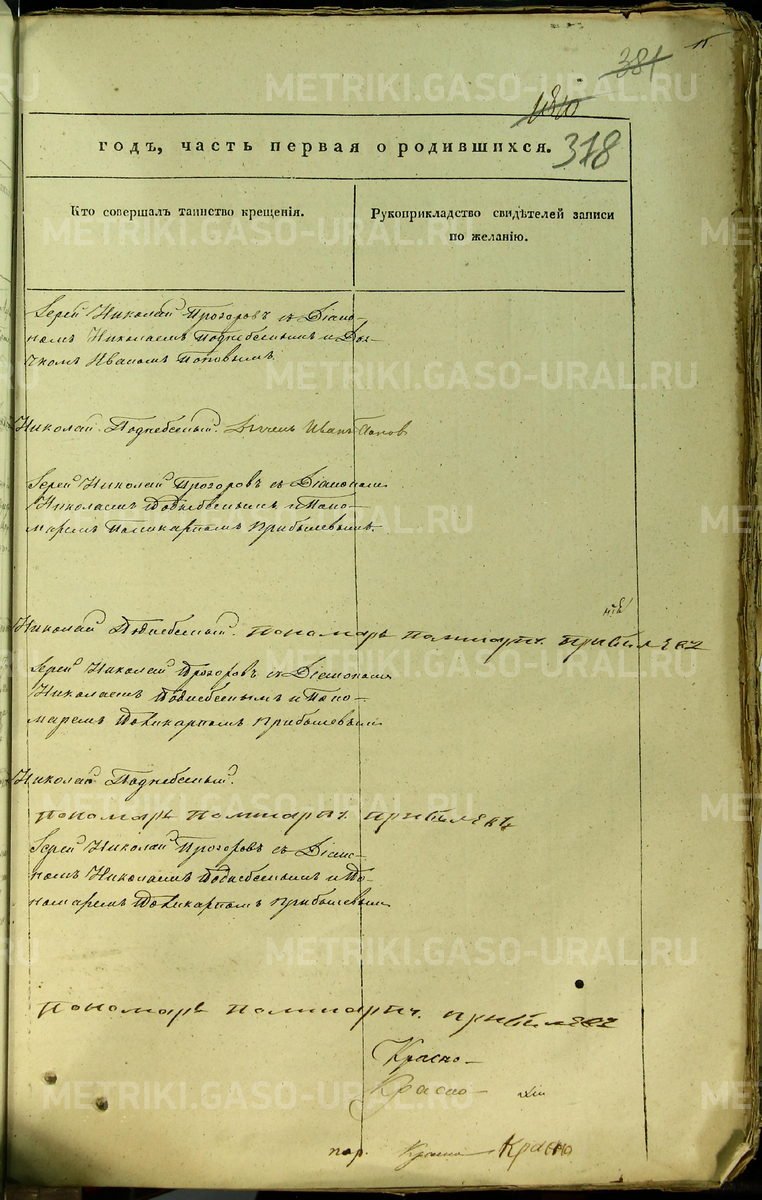 15.
381
1840
378
годъ, часть первая о родившихся.
Кто совершалъ таинство крещенія.
Рукоприкладство свидѣтелей записи
по желанію.
Іерей Николай Прозоровъ съ Діако-
номъ Николаемъ Поднебеснымъ и Дья-
чкомъ Иваномъ Поповымъ.
Николай Поднебесный. Дьячекъ Иванъ Попов
Іерей Николай Прозоровъ съ Діакономъ
Николаемъ Поднебеснымъ и Поно-
маремъ Поликарпомъ Прибылевымъ.
Николай Поднебесный. пономарь поликарпъ. прибылевъ
Іерей Николай Прозоровъ съ Діакономъ
Николаемъ Поднебеснымъ и Поно-
маремъ Поликарпомъ Прибылевым
Николай Поднебесный.
пономарь поликарпъ. прибылевъ
Іерей Николай Прозоровъ съ Діако-
номъ Николаемъ Поднебеснымъ и По-
номаремъ Поликарпомъ Прибылевым
пономарь поликарпъ. прибылевъ
Красно-
Красно-
пор. Красно- Красно
METRIKI.GASO-URAL.RU